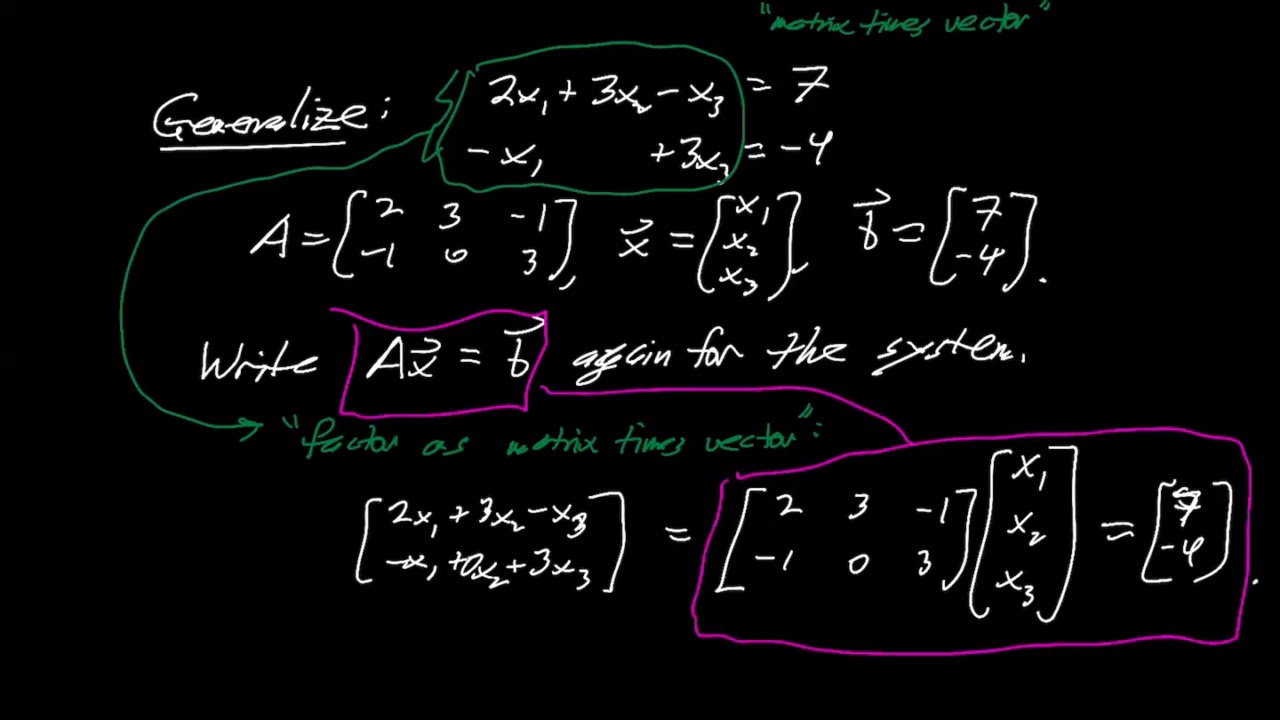 "matrix times vector"
Generalize: 2x₁ + 3x₂ - x₃ = 7
-x₁ +3x₃ = -4
A = [2 3 -1; -1 0 3], x⃗ = [x₁; x₂; x₃], b⃗ = [7; -4].
Write Ax⃗ = b⃗ again for the system.
"factor as matrix times vector":
[2x₁ + 3x₂ - x₃; -x₁ + 0x₂ + 3x₃] = [2 3 -1; -1 0 3][x₁; x₂; x₃] = [7; -4].